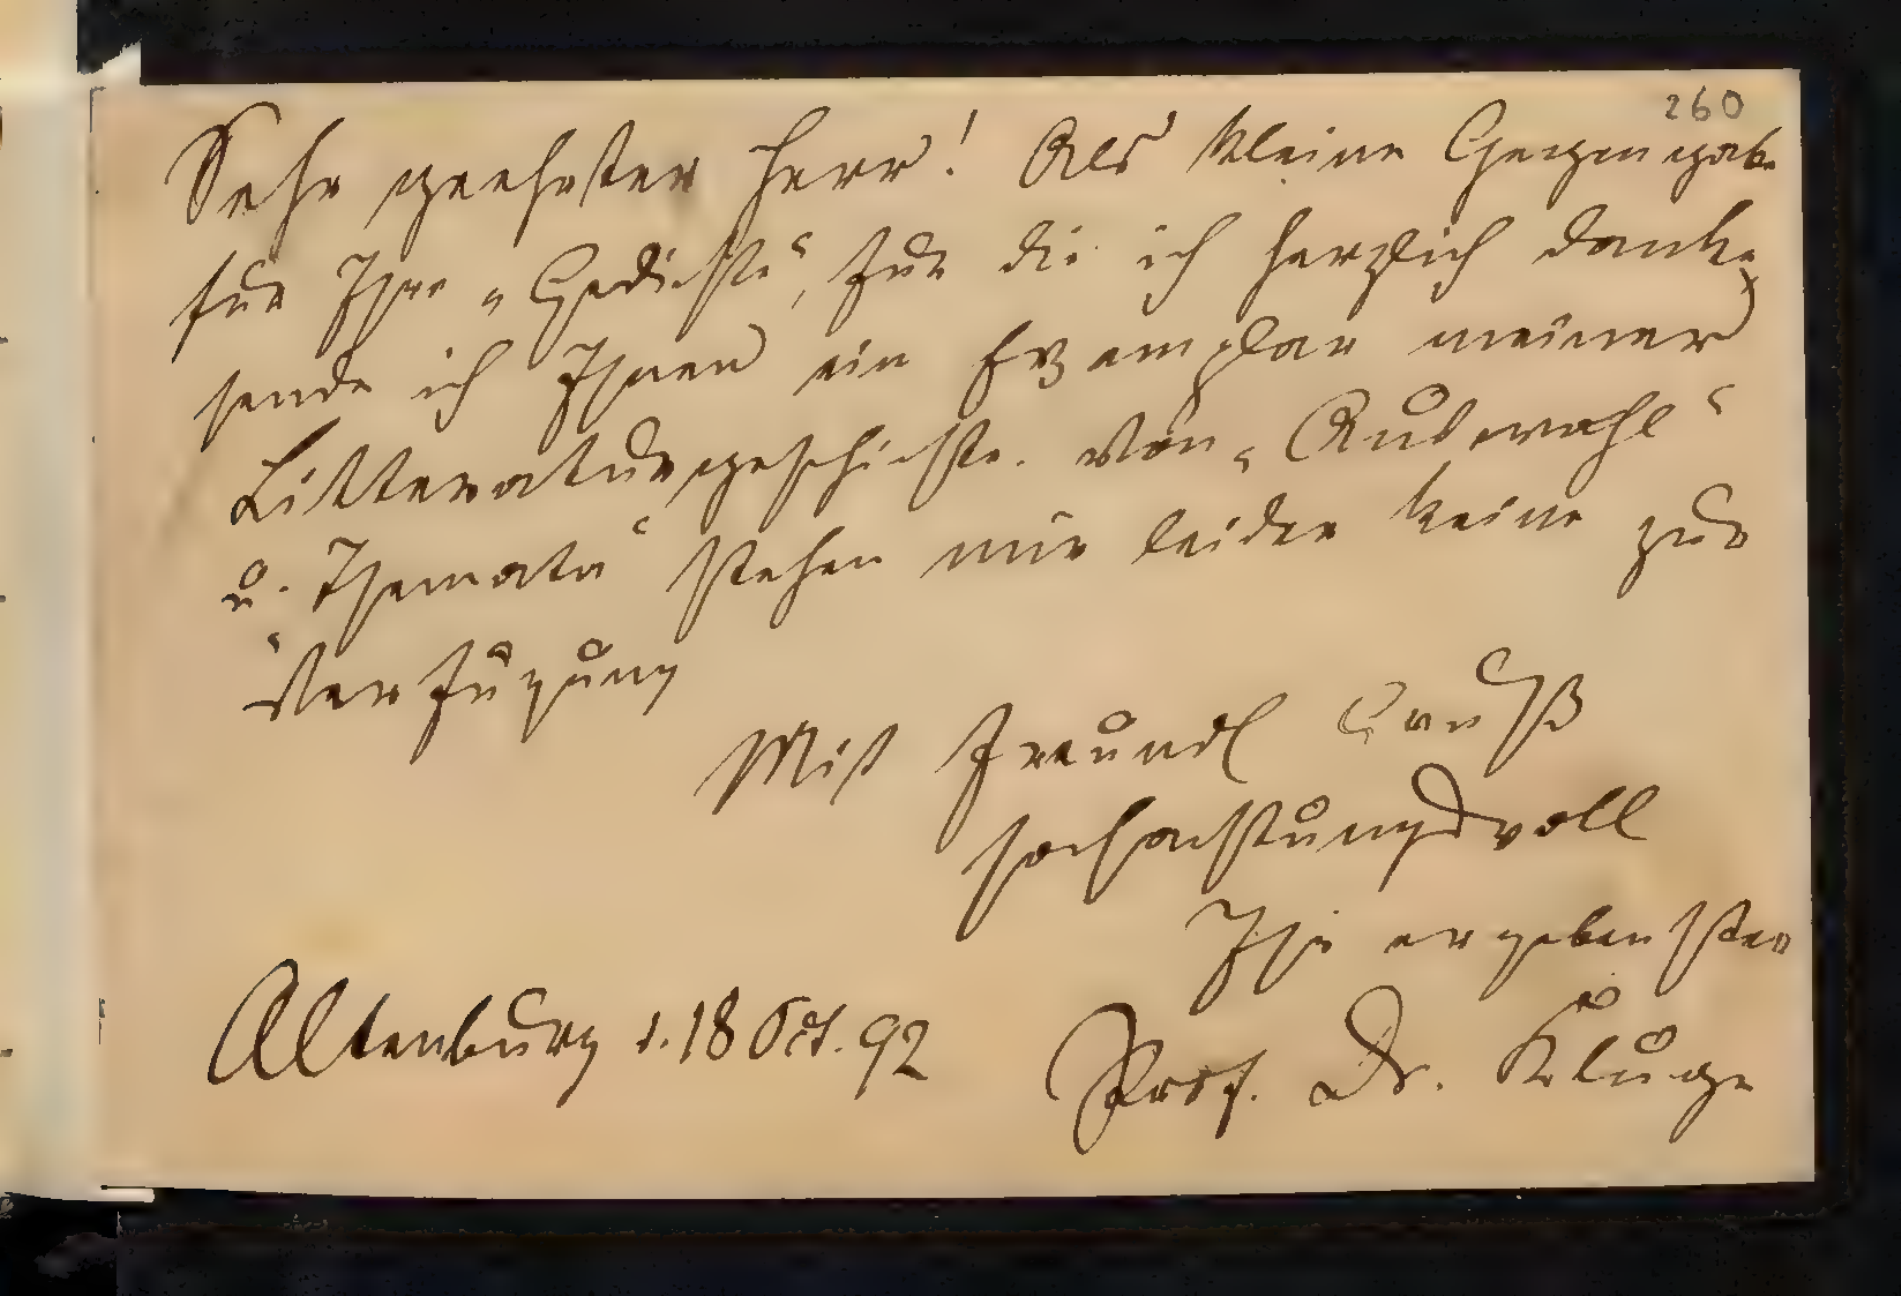 260
Sehr geehrter Herr! Als kleine Gegengabe
für Ihre „Gedichte“, für die ich herzlich danke,
sende ich Ihnen ein Exemplar meiner
Litteraturgeschichte. Von „Auswahl“
u. Themata“ stehen mir leider keine zur
Verfügung
Mit freundl Gruß
hochachtungsvoll
Ihr ergebenster
Altenburg d. 18 Oct. 92 Prof. Dr. Kluge